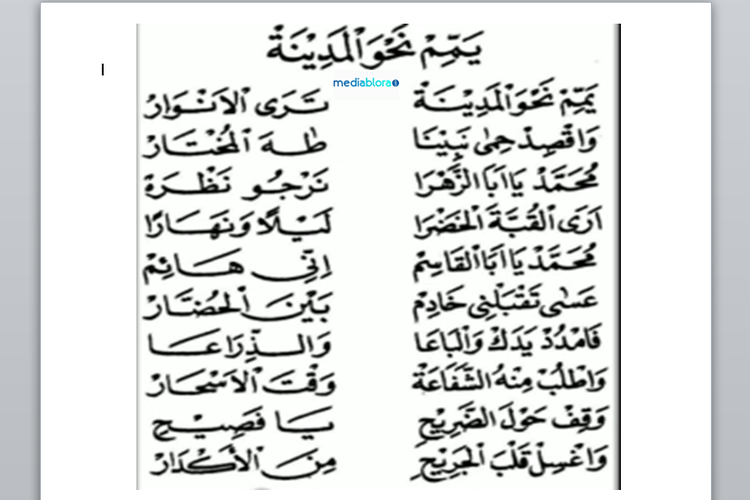 يَمِّمْ نَحْوَ الْمَدِيْنَةْ
mediablora
يَمِّمْ نَحْوَ الْمَدِيْنَةْ تَرَى الْاَنْوَارْ
وَاقْصِدْ حِمٰى نَبِيْنَا طٰهَ الْمُخْتَارْ
مُحَمَّدْ يَا اَبَا الزَّهْرَا نَرْجُو نَظْرَةْ
اَرَى الْقُبَّةَ الْخَضْرَا لَيْلًا وَنَهَارًا
مُحَمَّدْ يَا اَبَا الْقَاسِمْ اِنِّي هَائِمْ
عَسٰى تَقْبَلْنِي خَادِمْ بَيْنَ الْحُضَّارْ
فَامْدُدْ يَدَكْ وَالْبَاعَا وَالذِّرَاعَا
وَاطْلُبْ مِنْهُ الشَّفَاعَةْ وَقْتَ الْاَسْحَارْ
وَقِفْ حَوْلَ الضَّرِيْحِ يَا فَصِيْحِ
وَاغْسِلْ قَلْبَ الْجَرِيْحِ مِنَ الْأَكْدَارْ